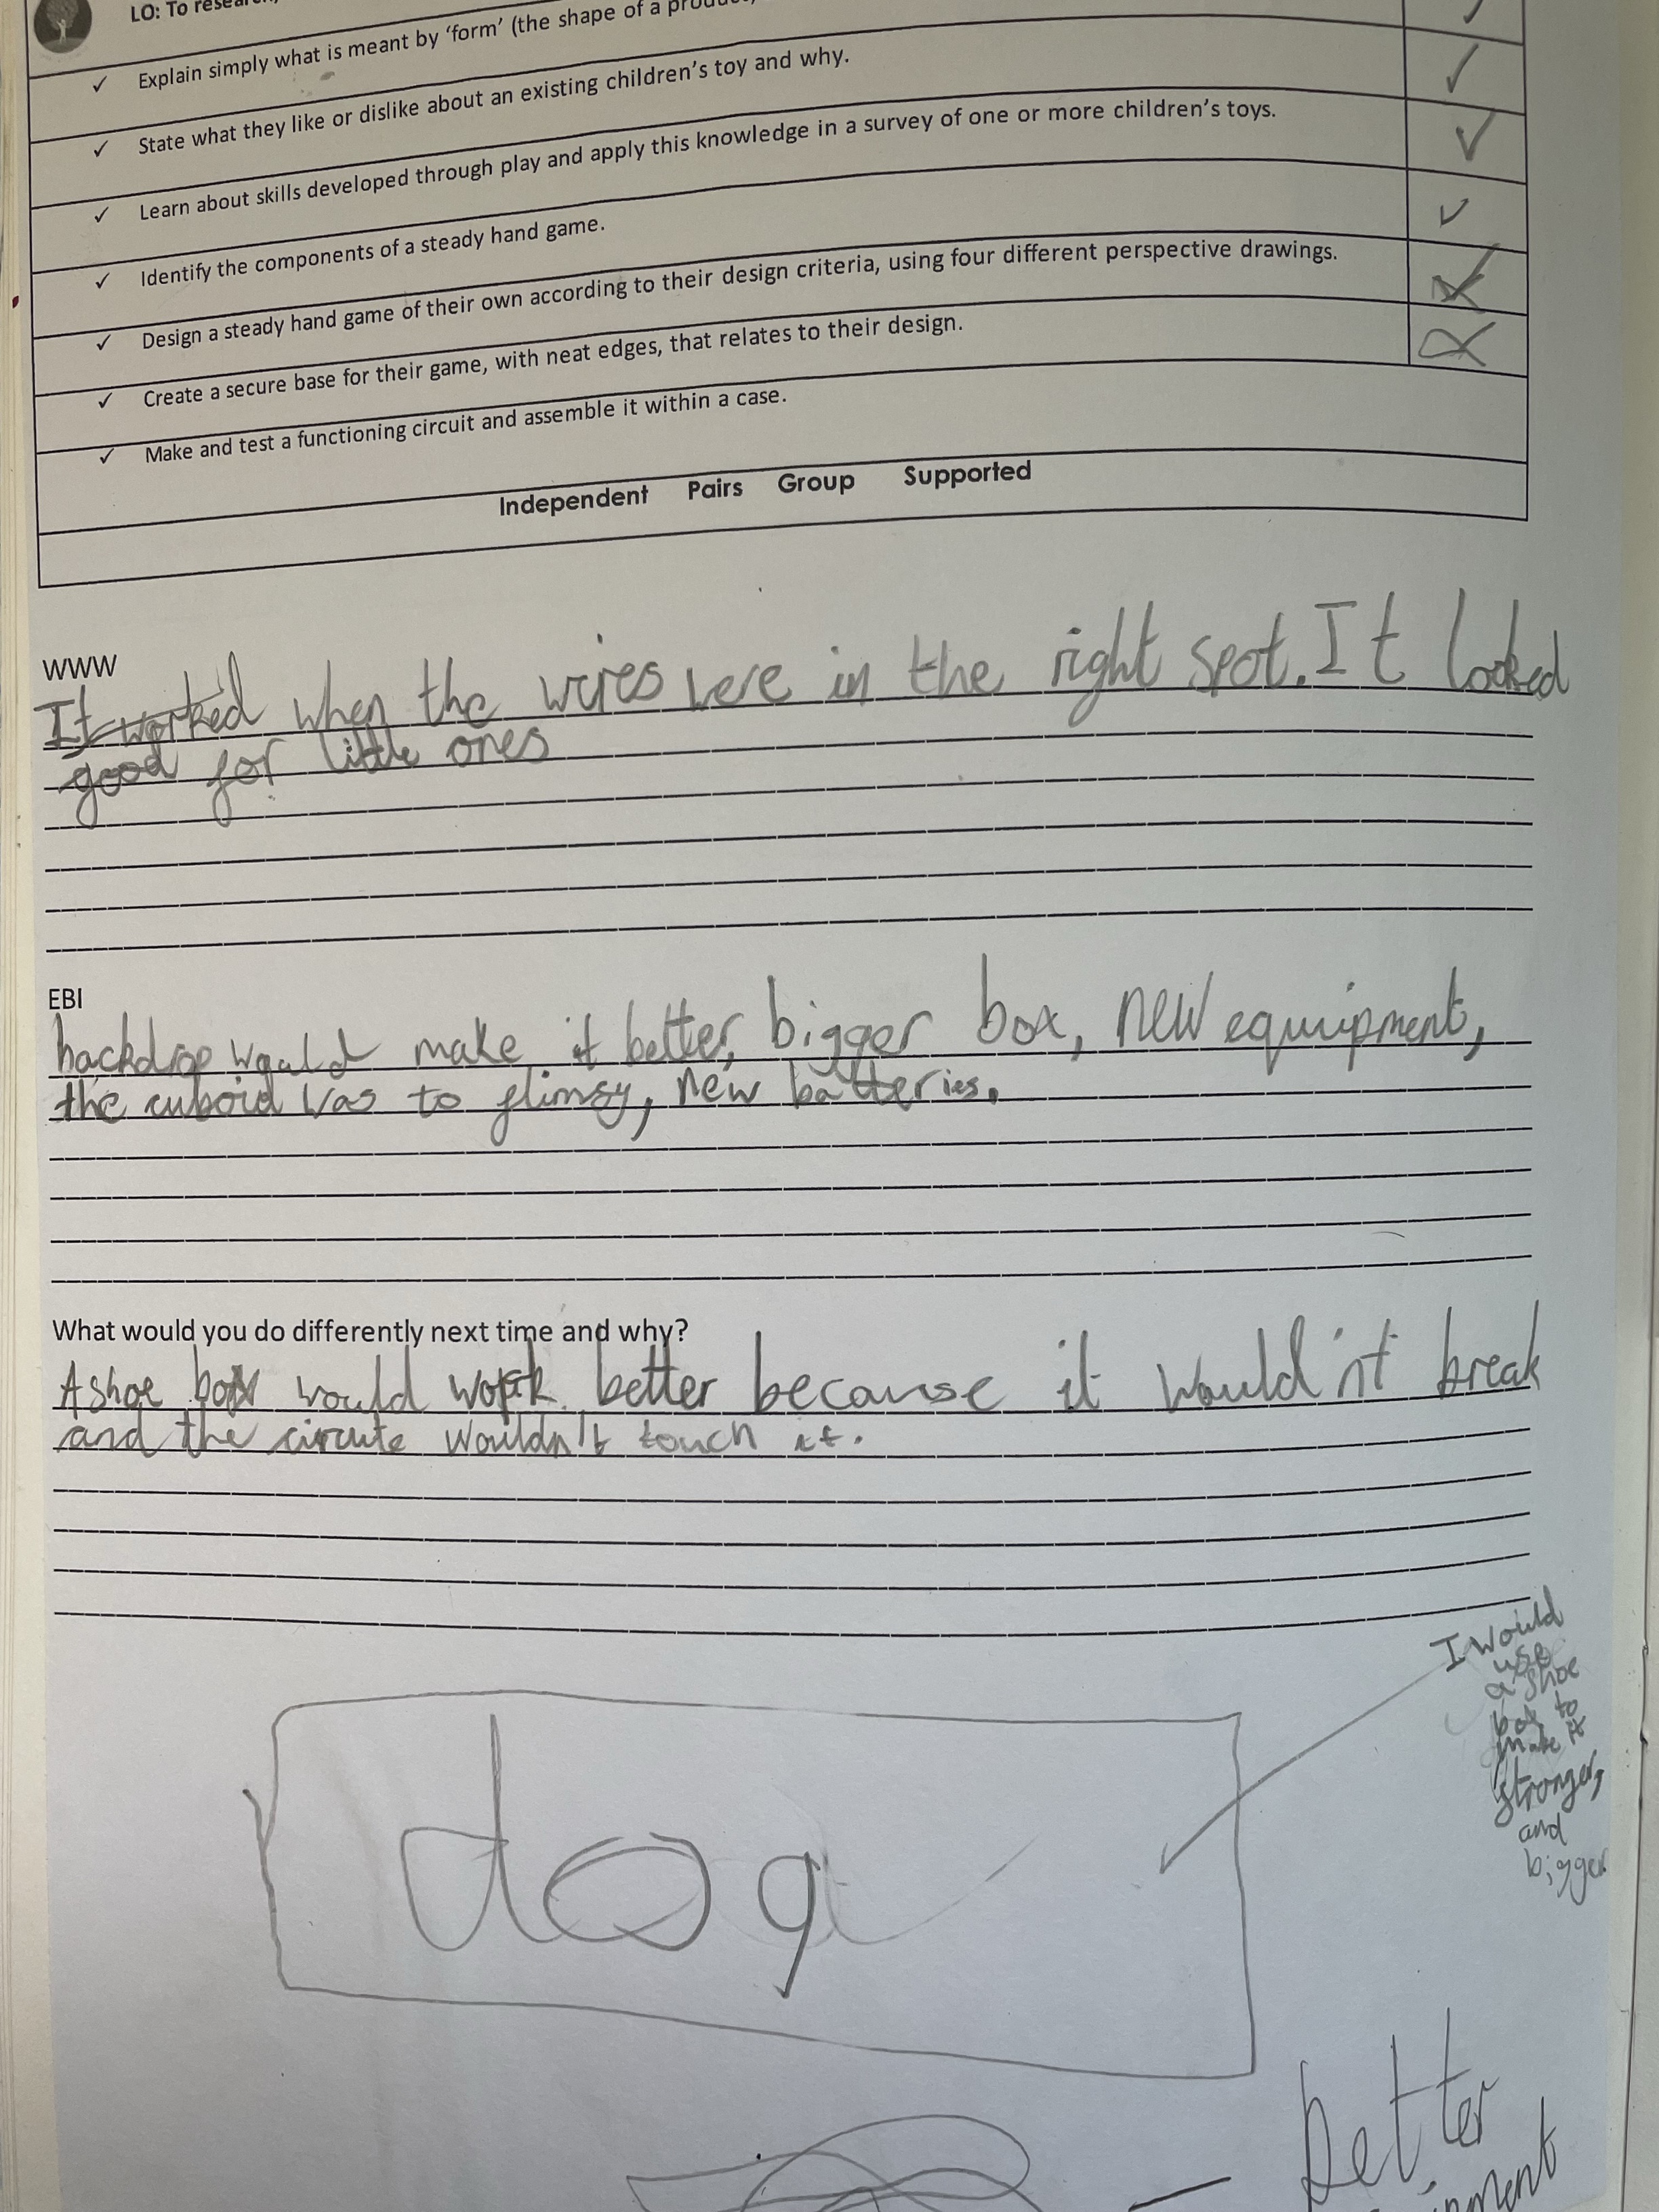 LO: To resear
✓ Explain simply what is meant by 'form' (the shape of a produ
✓ State what they like or dislike about an existing children's toy and why.
✓ Learn about skills developed through play and apply this knowledge in a survey of one or more children's toys.
✓ Identify the components of a steady hand game.
✓ Design a steady hand game of their own according to their design criteria, using four different perspective drawings.
✓ Create a secure base for their game, with neat edges, that relates to their design.
✓ Make and test a functioning circuit and assemble it within a case.
Independent Pairs Group Supported
WWW
It worked when the wires were in the right spot. It looked
good for little ones
EBI
backdrop would make it better, bigger box, new equipment,
the cuboid was to flimsy, new batteries.
What would you do differently next time and why?
A shoe box would work better because it would'nt break
and the circute wouldn't touch it.
I would
use
a shoe
box to
make it
stronger,
and
bigger.
dog
better